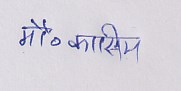 मौ० कासिम